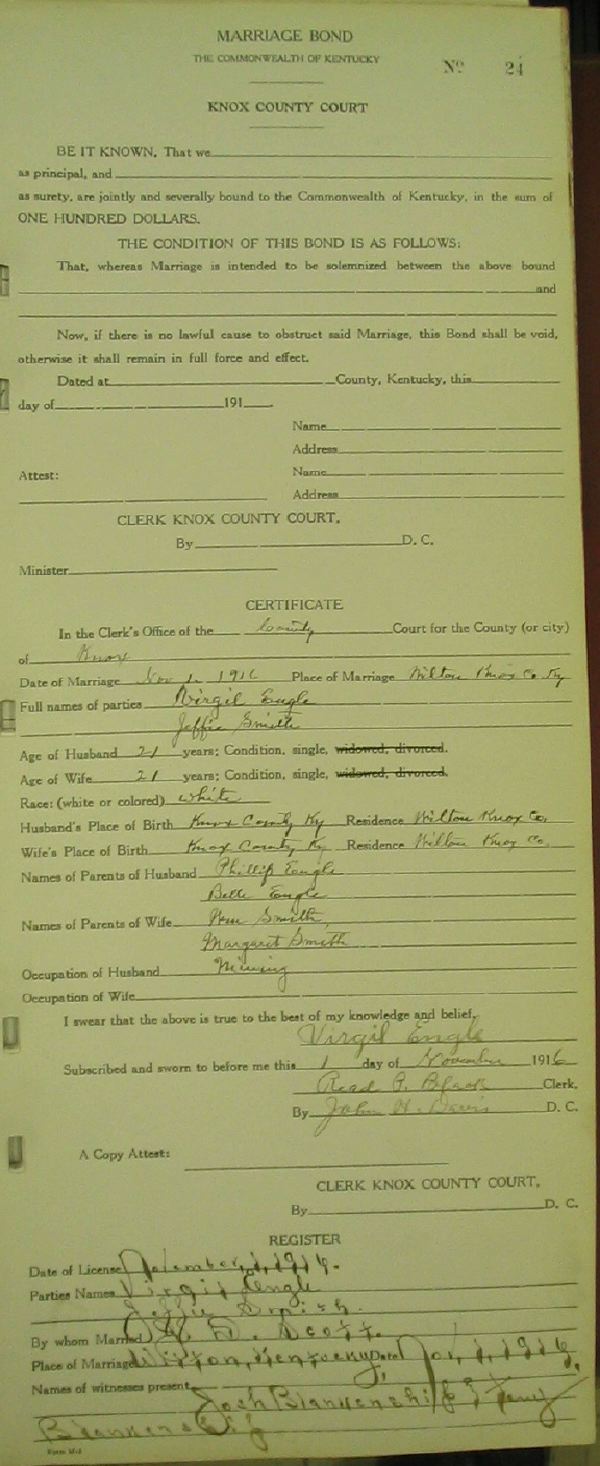 MARRIAGE BOND
THE COMMONWEALTH OF KENTUCKY
No 24
KNOX COUNTY COURT
BE IT KNOWN, That we
as principal, and
as surety, are jointly and severally bound to the Commonwealth of Kentucky, in the sum of
ONE HUNDRED DOLLARS.
THE CONDITION OF THIS BOND IS AS FOLLOWS:
That, whereas Marriage is intended to be solemnized between the above bound
and
Now, if there is no lawful cause to obstruct said Marriage, this Bond shall be void,
otherwise it shall remain in full force and effect.
Dated at County, Kentucky, this
day of 191
Name
Address
Attest: Name
Address
CLERK KNOX COUNTY COURT.
By D. C.
Minister
CERTIFICATE
In the Clerk's Office of the County Court for the County (or city)
of Knox
Date of Marriage Nov 1 1916 Place of Marriage Wilton Knox Co Ky
Full names of parties Virgil Engle
Jeffie Smith
Age of Husband 21 years; Condition, single, widowed, divorced.
Age of Wife 21 years; Condition, single, widowed, divorced.
Race: (white or colored) white
Husband's Place of Birth Knox County Ky Residence Wilton Knox Co.
Wife's Place of Birth Knox County Ky Residence Wilton Knox Co.
Names of Parents of Husband Phillip Engle
Belle Engle
Names of Parents of Wife Wm Smith,
Margaret Smith
Occupation of Husband Mining
Occupation of Wife
I swear that the above is true to the best of my knowledge and belief.
Virgil Engle
Subscribed and sworn to before me this 1 day of November 1916
Read P. Black Clerk.
By John H. Davis D. C.
A Copy Attest:
CLERK KNOX COUNTY COURT.
By D. C.
REGISTER
Date of License November, 1, 1916.
Parties Names Virgil Engle
Jeffie Smith.
By whom Married D. Scott.
Place of Marriage Wilton, Kentucky, Date Nov, 1, 1916,
Names of witnesses present Blankenship
Blankenship
Form M-1